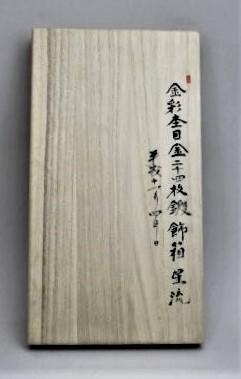 金彩杢目金二十四枚鍛 飾箱 星流
平成十一年 四月 日